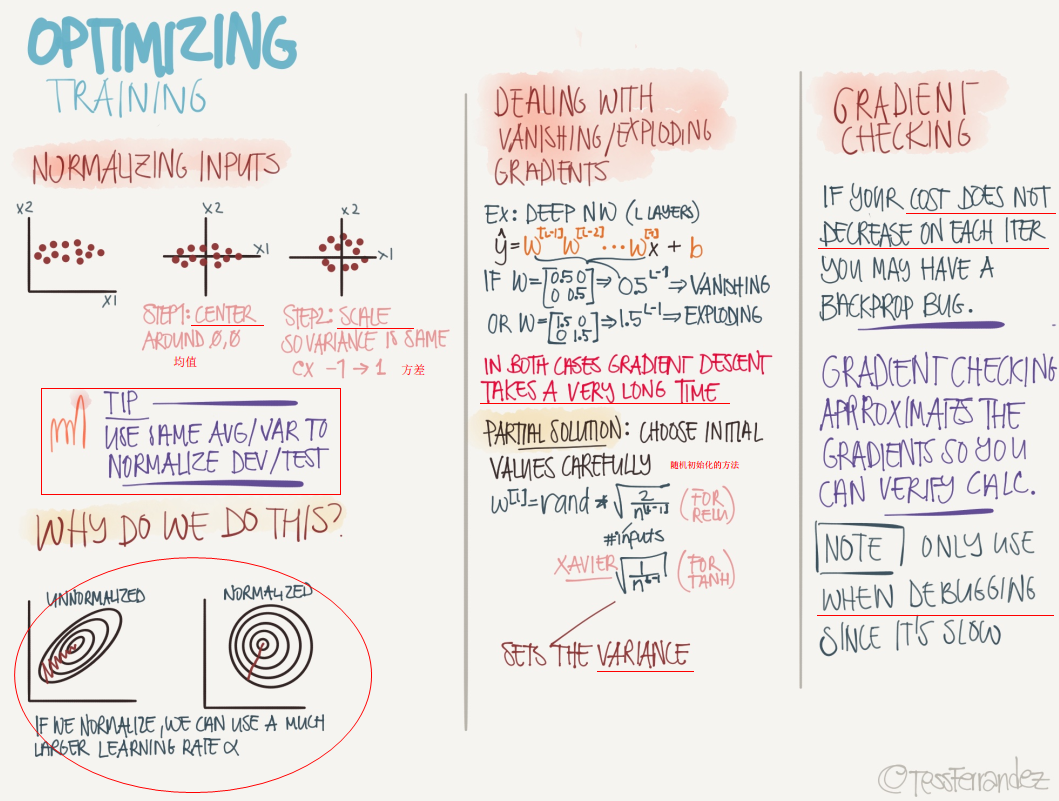 OPTIMIZING
TRAINING
NORMALIZING INPUTS
X2
X1
X2
X1
X2
X1
STEP1: CENTER
AROUND 0,0
均值
STEP2: SCALE
SO VARIANCE IS SAME
CX -1 → 1 方差
TIP
USE SAME AVG/VAR TO
NORMALIZE DEV/TEST
WHY DO WE DO THIS?
UNNORMALIZED
NORMALIZED
IF WE NORMALIZE, WE CAN USE A MUCH
LARGER LEARNING RATE α
DEALING WITH
VANISHING/EXPLODING
GRADIENTS
EX: DEEP NW (L LAYERS)
ŷ = W^[L-1] W^[L-2] ... W^[0] X + b
IF W = [0.5 0 0 0.5] ⇒ 0.5^L-1 ⇒ VANISHING
OR W = [1.5 0 0 1.5] ⇒ 1.5^L-1 ⇒ EXPLODING
IN BOTH CASES GRADIENT DESCENT
TAKES A VERY LONG TIME
PARTIAL SOLUTION: CHOOSE INITIAL
VALUES CAREFULLY 随机初始化的方法
W^[l] = rand * √2/n^[l-1] (FOR RELU)
#inputs
XAVIER √1/n^l-1 (FOR TANH)
SETS THE VARIANCE
GRADIENT
CHECKING
IF YOUR COST DOES NOT
DECREASE ON EACH ITER
YOU MAY HAVE A
BACKPROP BUG.
GRADIENT CHECKING
APPROXIMATES THE
GRADIENTS SO YOU
CAN VERIFY CALC.
NOTE ONLY USE
WHEN DEBUGGING
SINCE IT'S SLOW
©TessFerrandez